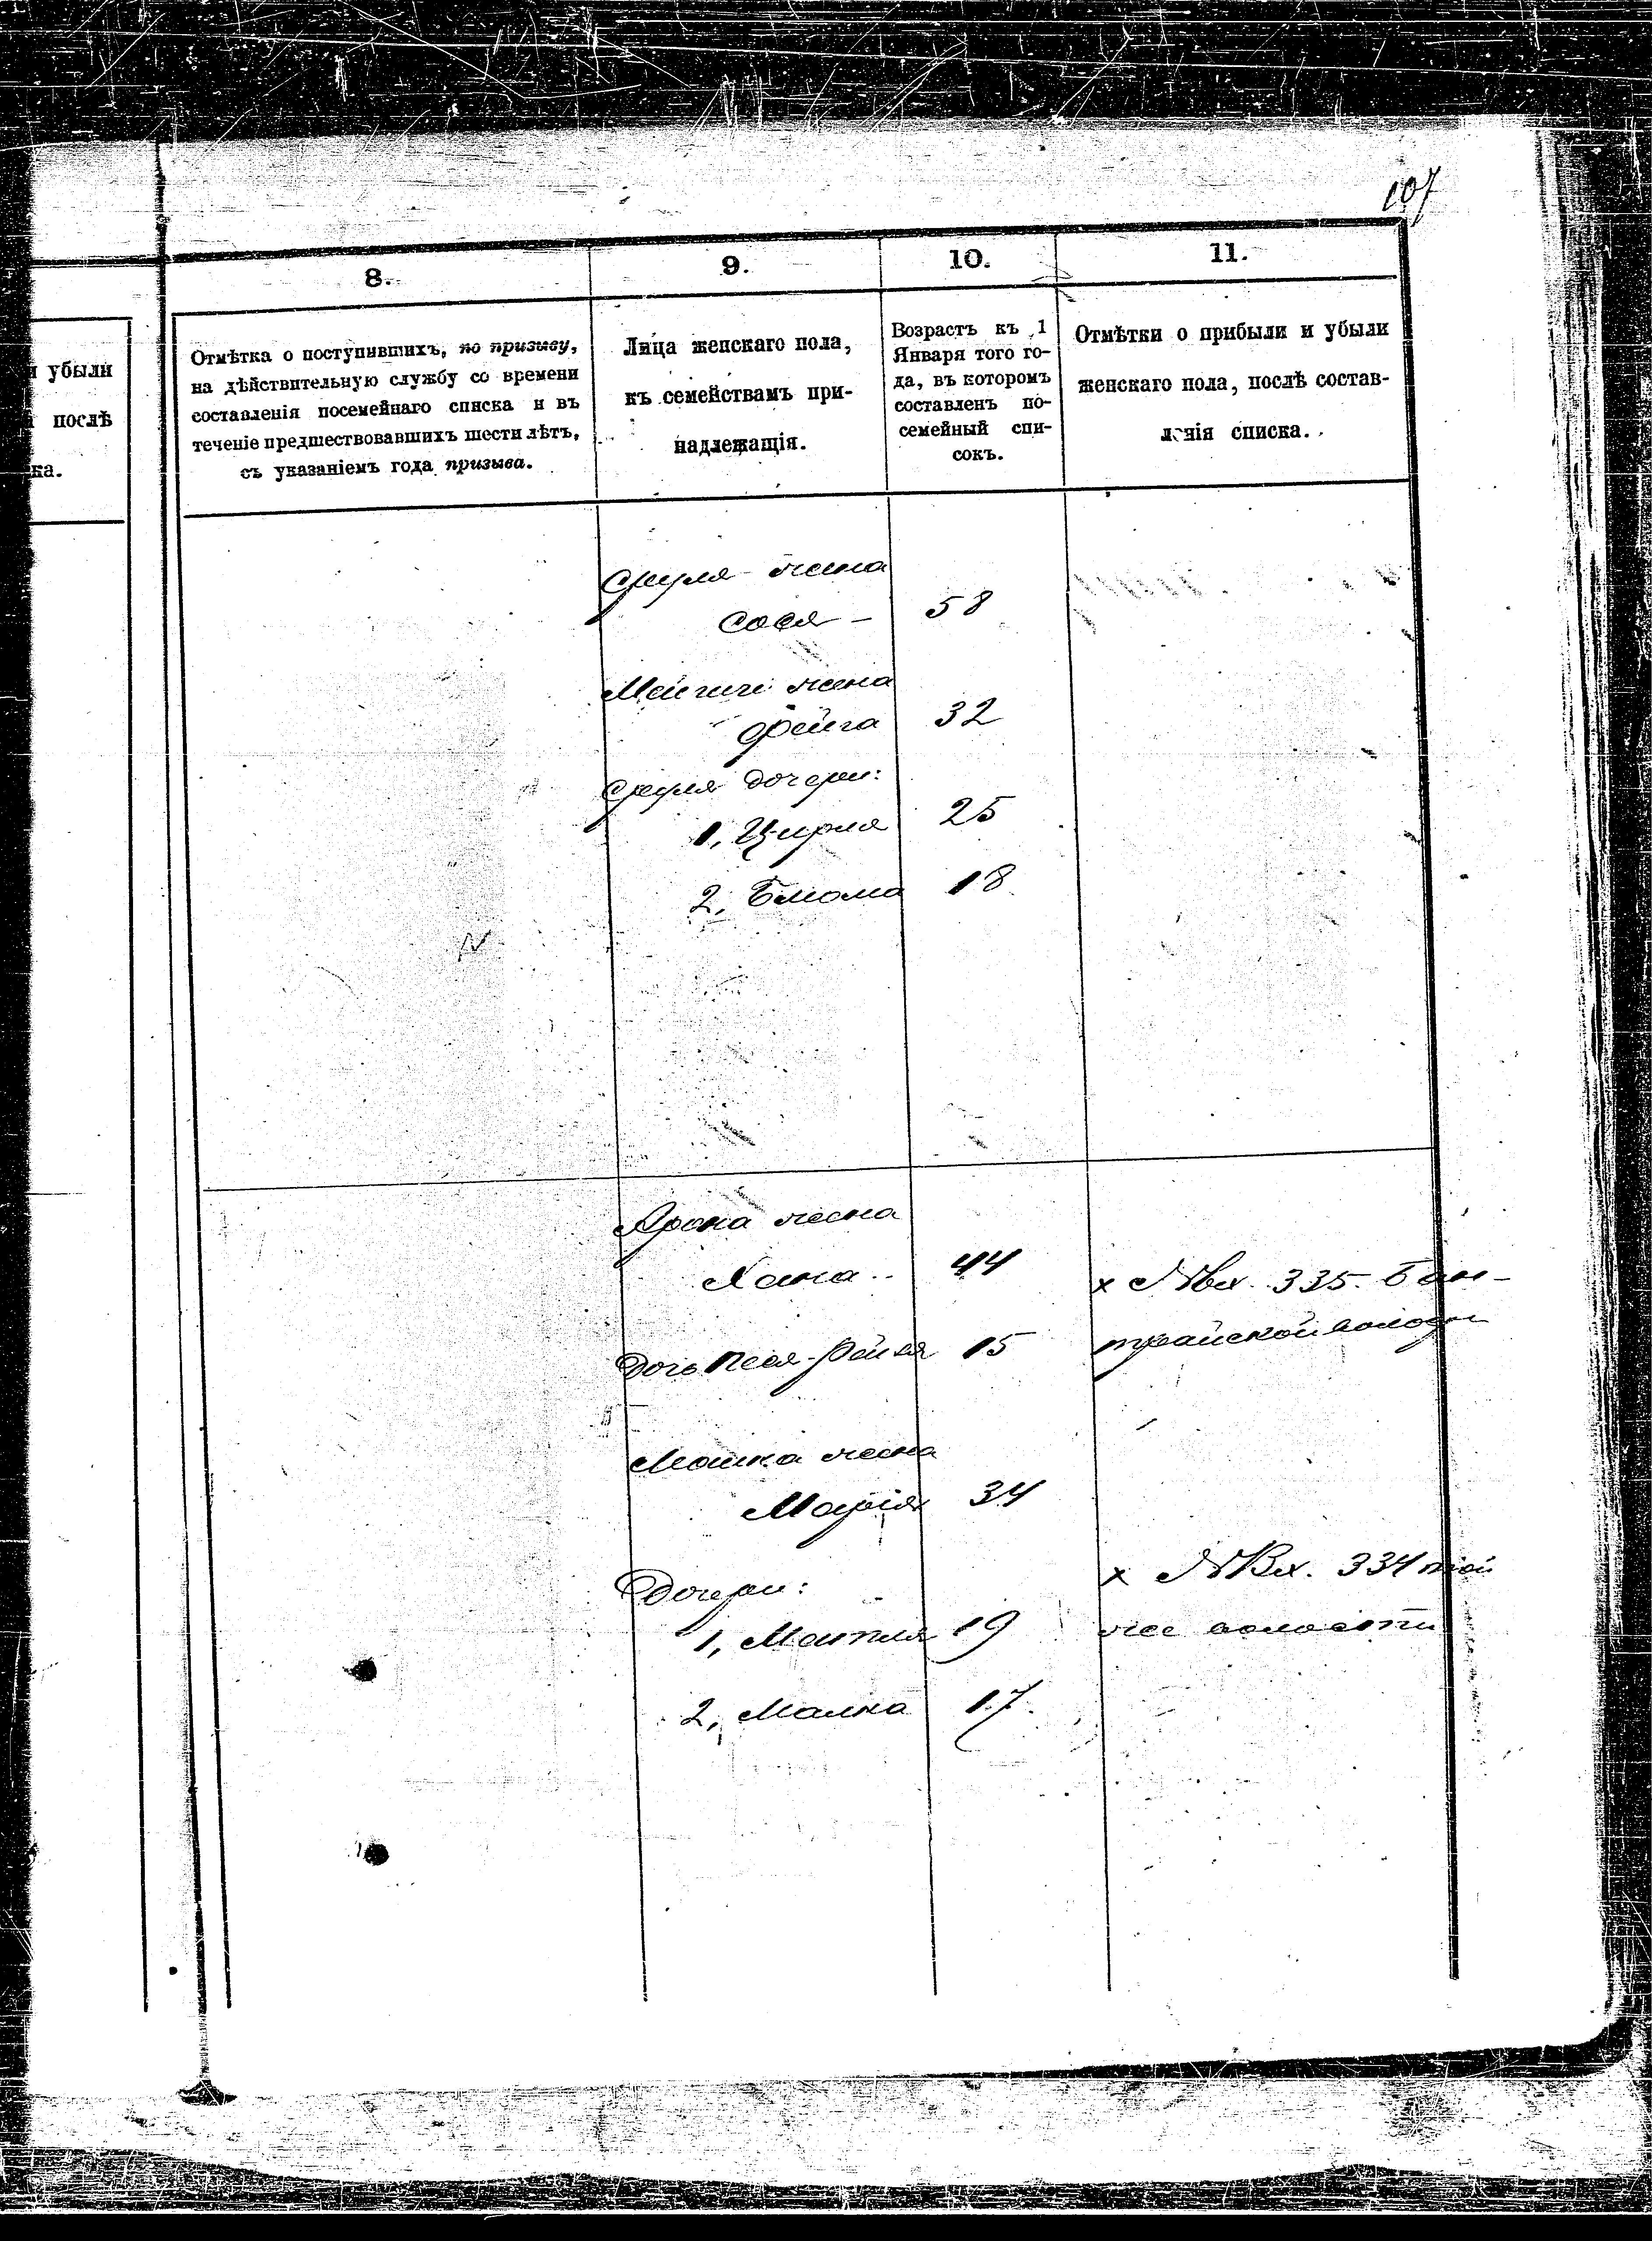 107
8.
9.
10.
11.
и убыли
послѣ
ка.
Отмѣтка о поступившихъ, по призыву,
на дѣйствительную службу со времени
составленія посемейнаго списка и въ
теченіе предшествовавшихъ шести лѣтъ,
съ указаніемъ года призыва.
Лица женскаго пола,
къ семействамъ при-
надлежащія.
Возрастъ къ 1
Января того го-
да, въ которомъ
составленъ по-
семейный спи-
сокъ.
Отмѣтки о прибыли и убыли
женскаго пола, послѣ состав-
ленія списка.
Сруля жена
Сося - 58
жена
Фейга 32
Сруля дочери:
1, Цирля 25
2, Блюма 18
Арона жена
Хана 44
х №Вх. 335.
Дочь Песя-Рейзя 15
Мошка жена
Марія 34
Дочери:
х №Вх. 334 той
1, Матля 19
же волости
2, Малка 17.